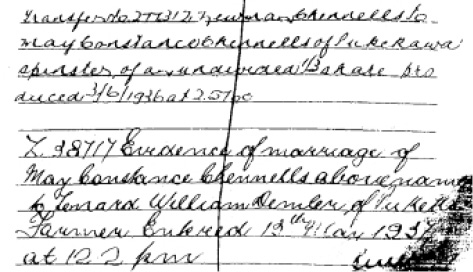 Transfer No 277312, Newman Chennells to
May Constance Chennells of Pukekawa
spinster of an undivided 1/3 share pro
duced 3/6/1936 at 2.57 pm
Z 98717 Evidence of marriage of
May Constance Chennells above nam
to Lenard William Demler of
Farmer Entered 13th May 1937
at 12.2 pm